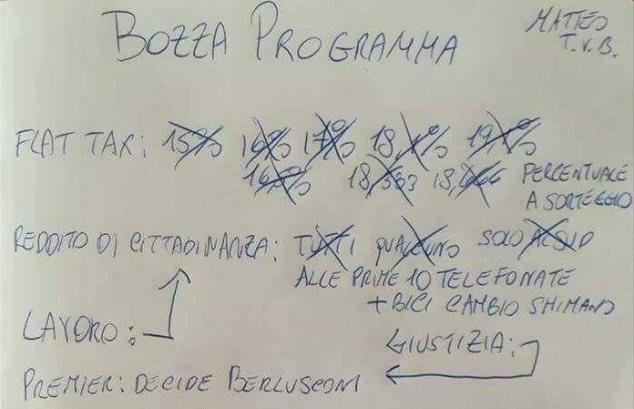 BOZZA PROGRAMMA
MATTEO
T.V.B.
FLAT TAX: 15% 16% 17% 18,1% 19,1%
18,583 PERCENTUALE
A SORTEGGIO
REDDITO DI CITTADINANZA: TUTTI QUALCUNO SOLO AL SUD
ALLE PRIME 10 TELEFONATE
+ BICI CAMBIO SHIMANO
LAVORO:
GIUSTIZIA:
PREMIER: DECIDE BERLUSCONI